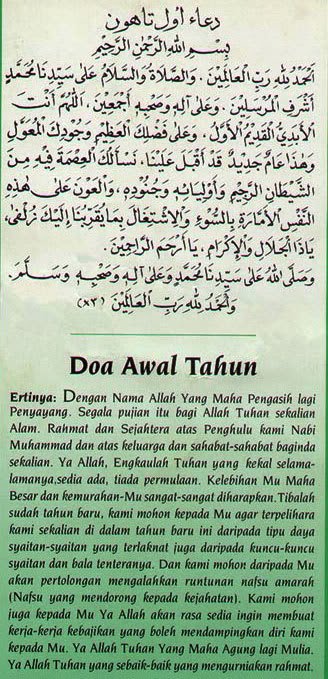 دعاء اول تاهون
بِسْمِ اللهِ الرَّحْمٰنِ الرَّحِيْمِ
اَلْحَمْدُ لِلّٰهِ رَبِّ الْعَالَمِيْنَ. وَالصَّلَاةُ وَالسَّلَامُ عَلٰى سَيِّدِنَا مُحَمَّدٍ
أَشْرَفِ الْمُرْسَلِيْنَ. وَعَلٰى آلِهِ وَصَحْبِهِ أَجْمَعِيْنَ. اَللّٰهُمَّ أَنْتَ
الْأَبَدِيُّ الْقَدِيْمُ الْأَوَّلُ. وَعَلٰى فَضْلِكَ الْعَظِيْمِ وَجُوْدِكَ الْمُعَوَّلُ
وَهٰذَا عَامٌ جَدِيْدٌ قَدْ أَقْبَلَ عَلَيْنَا. نَسْأَلُكَ الْعِصْمَةَ فِيْهِ مِنَ
الشَّيْطَانِ الرَّجِيْمِ وَأَوْلِيَائِهِ وَجُنُوْدِهِ. وَالْعَوْنَ عَلٰى هٰذِهِ
النَّفْسِ الْأَمَّارَةِ بِالسُّوْءِ وَالْاِشْتِغَالَ بِمَا يُقَرِّبُنَا إِلَيْكَ زُلْفٰى،
يَاذَا الْجَلَالِ وَالْإِكْرَامِ. يَا أَرْحَمَ الرَّاحِمِيْنَ.
وَصَلَّى اللهُ عَلٰى سَيِّدِنَا مُحَمَّدٍ وَعَلٰى آلِهِ وَصَحْبِهِ وَسَلَّمَ.
وَالْحَمْدُ لِلّٰهِ رَبِّ الْعَالَمِيْنَ (×٣)
Doa Awal Tahun
Ertinya: Dengan Nama Allah Yang Maha Pengasih lagi
Penyayang. Segala pujian itu bagi Allah Tuhan sekalian
Alam. Rahmat dan Sejahtera atas Penghulu kami Nabi
Muhammad dan atas keluarga dan sahabat-sahabat baginda
sekalian. Ya Allah, Engkaulah Tuhan yang kekal selama-
lamanya,sedia ada, tiada permulaan. Kelebihan Mu Maha
Besar dan kemurahan-Mu sangat-sangat diharapkan.Tibalah
sudah tahun baru, kami mohon kepada Mu agar terpelihara
kami sekalian di dalam tahun baru ini daripada tipu daya
syaitan-syaitan yang terlaknat juga daripada kuncu-kuncu
syaitan dan bala tenteranya. Dan kami mohon daripada Mu
akan pertolongan mengalahkan runtunan nafsu amarah
(Nafsu yang mendorong kepada kejahatan). Kami mohon
juga kepada Mu Ya Allah akan rasa sedia ingin membuat
kerja-kerja kebajikan yang boleh mendampingkan diri kami
kepada Mu. Ya Allah Tuhan Yang Maha Agung lagi Mulia.
Ya Allah Tuhan yang sebaik-baik yang mengurniakan rahmat.